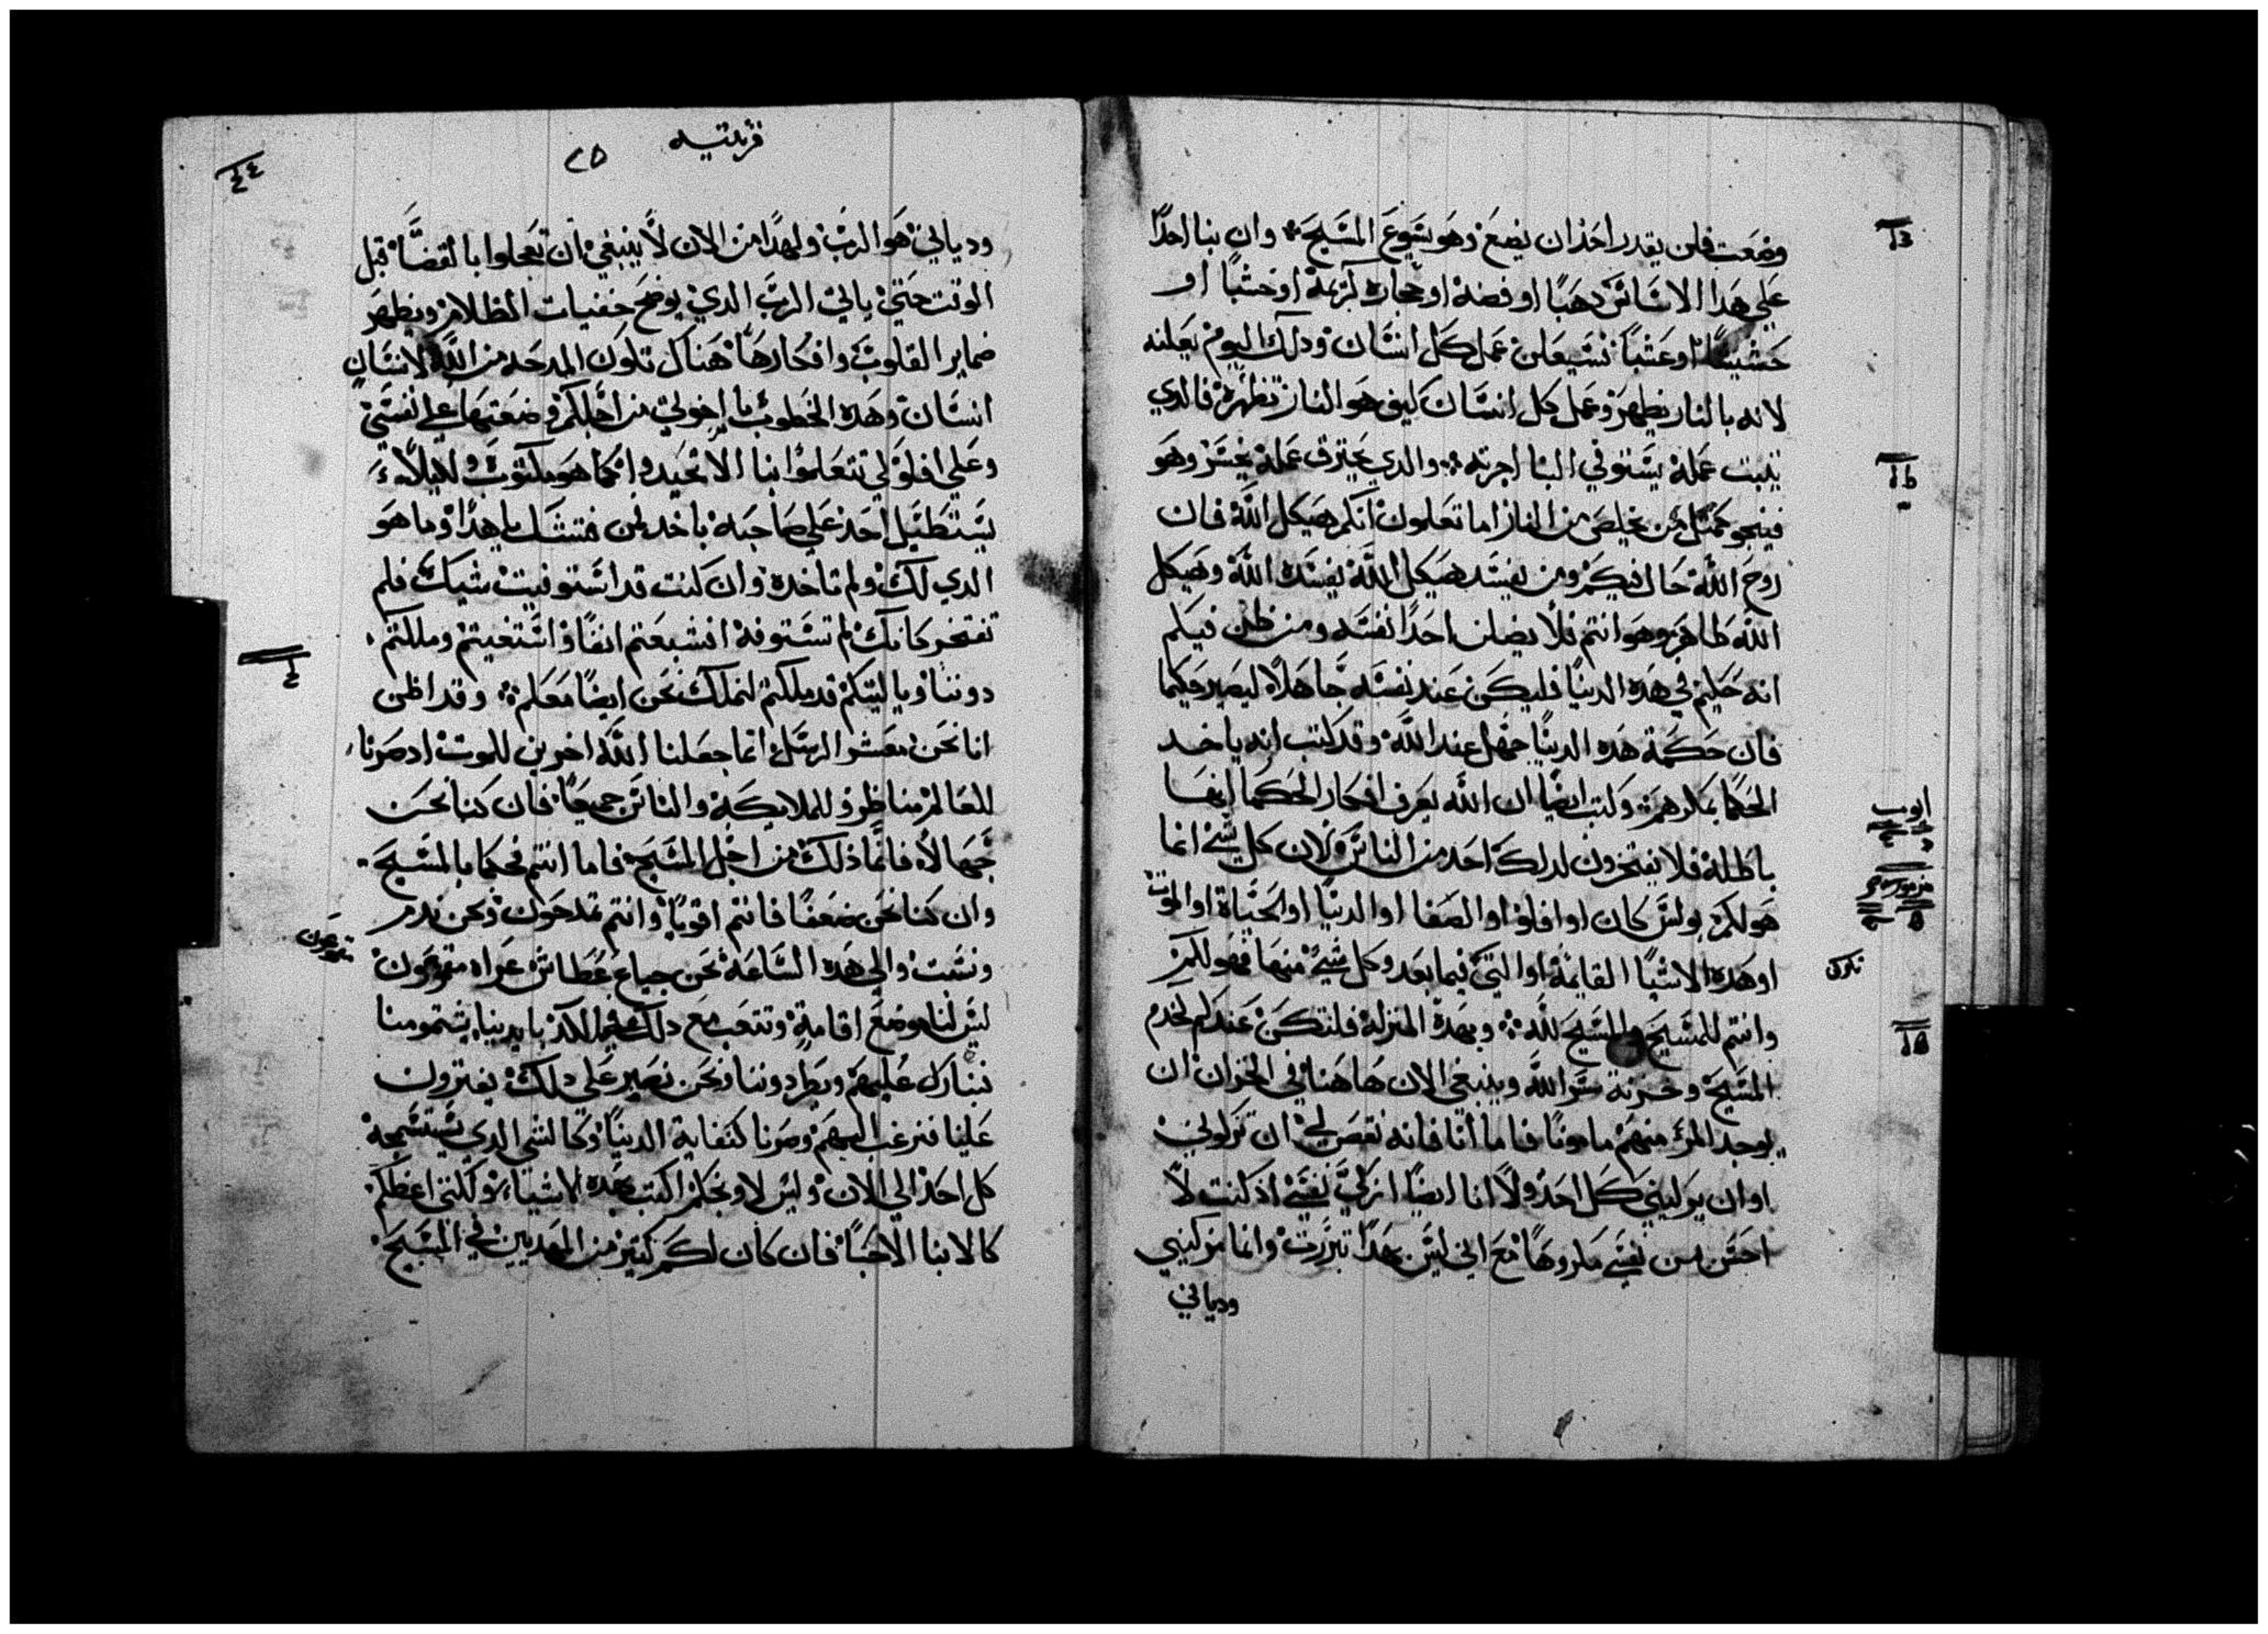 وضعت فلن يقدر احد ان يضع وهو يسوع المسيح وان بنا احدًا
علي هدا الاساس دهبًا او فضة او حجارة كريمة او خشبًا او
حشيشًا او عشبًا فسيعلن عمل كل انسان ودلك اليوم يعلنه
لانه بالنار يظهر وعمل كل انسان كيف هو النار تظهره فالدي
يتبت عمله يستوفي البنا اجرته والدي يحترق عمله يخسر وهو
فينجو كمتل من يخلص من النار اما تعلمون انكم هيكل الله فان
روح الله حال فيكم ومن يفسد هيكل الله يفسده الله وهيكل
الله طاهر وهو انتم فلا يضلن احدًا نفسه ومن ظن فيكم
انه حكيم في هده الدنيا فليكن عند نفسه جاهلاً ليصير حكيما
فان حكمة هده الدنيا جهل عند الله وقد كتب انه ياخد
الحكما بمكرهم وكتب ايضًا ان الله يعرف افكار الحكما انها
باطلة فلا يفتخرون لدلك احد من الناس لان كل شي انما
هو لكم بولس كان او افلو او الصفا او الدنيا او الحياة او الموت
او هده الاشيا القايمة او التي فيما بعد وكل شي منها فهو لكم
وانتم للمسيح والمسيح لله وبهده المنزلة فلنكن عندكم كخدم
المسيح وخزنة سر الله وينبغي الان هاهنا في الخزان ان
يوجد المرء منهم مامونًا فاما انا فانه نقص لي ان تزكوني
او ان يزكيني كل احد ولا انا ايضًا ازكي نفسي اد كنت لا
احس من نفسي مكروهًا مع اني ليس بهدا تبررت وانما مزكيني
ودياني
١٣
١٤
ايوب
مزمور
١٥
قرنتيه
٢٥
٤٤
ودياني هو الرب ولهدا من الان لا ينبغي ان تعجلوا بالقضا قبل
الوقت حتي ياتي الرب الدي يوضح خفيات الظلام ويظهر
ضماير القلوب وافكارها هناك تكون المدحه من الله لانسان
انسان وهده الخطوب يا اخوتي من اجلكم وضعتها علي نفسي
وعلي افلو لي تتعلموا بنا الا تحيدوا كما هو مكتوب ليلاء
يستطيل احد علي صاحبه باحد فمن فتشك يا هدا وما هو
الدي لك ولم تاخده وان كنت قد استوفيت شيك فلم
تفتخر كانك لم تستوفه انشبعتم انفًا واستغنيتم وملكتم
دوننا ويا ليتكم قد ملكتم لنملك نحن ايضًا معكم وقد اظن
انا نحن معشر الرسل انما جعلنا الله اخرين للموت اد صرنا
للعالم مناظر وللملايكة والناس جميعًا فان كنا نحن
جهالاً فانما ذلك من اجل المسيح فاما انتم فحكما بالمسيح
وان كنا نحن ضعفًا فانتم اقويا وانتم تمدحون ونحن ندم
ونشتم والي هده الساعة نحن جياع عطاش عراه
ليس لنا موضع اقامة ونتعب مع دلك في الكد بايدينا يشتمونا
نتبارك عليهم ويطردوننا ونحن نصبر علي دلك يفترون
علينا فنرغب اليهم وصرنا كنفاية الدنيا وكالشي الدي يستسمجه
كل احد الي الان وليس لاوبخكم اكتب بهده الاشياء ولكني اعظكم
كالابنا الاحبا فان كان لكم كتير من المهدبين في المسيح